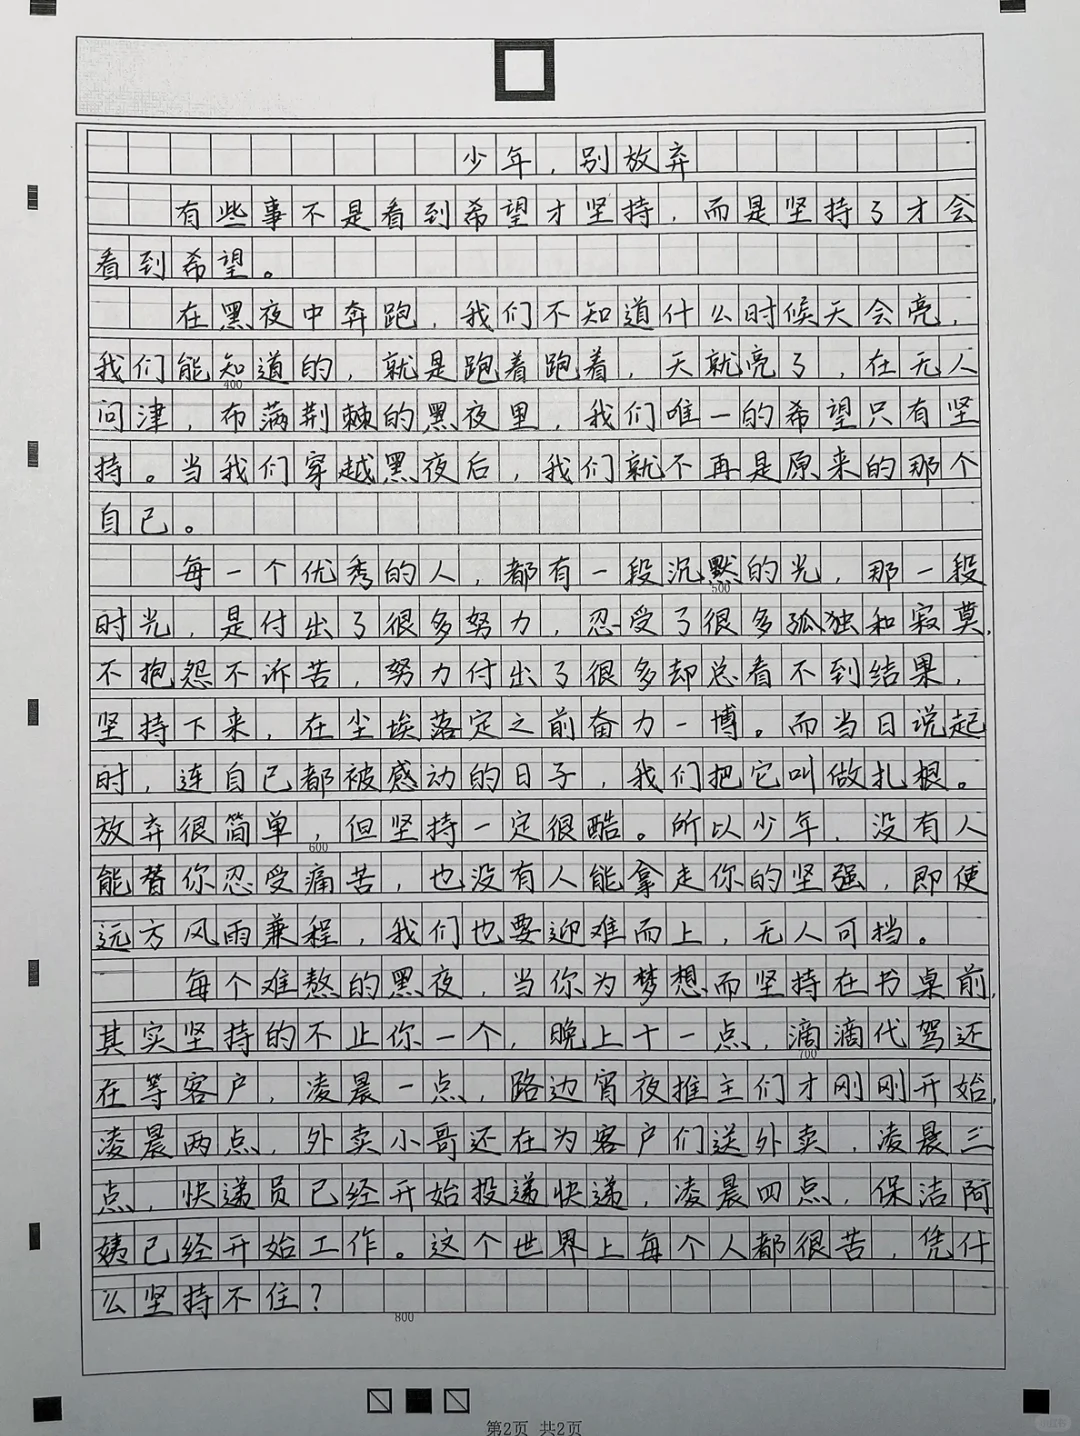 少年，别放弃
有些事不是看到希望才坚持，而是坚持了才会
看到希望。
在黑夜中奔跑，我们不知道什么时候天会亮，
我们能知道的，就是跑着跑着，天就亮了，在无人
400
问津，布满荆棘的黑夜里，我们唯一的希望只有坚
持。当我们穿越黑夜后，我们就不再是原来的那个
自己。
每一个优秀的人，都有一段沉默的光，那一段
500
时光，是付出了很多努力，忍受了很多孤独和寂莫，
不抱怨不诉苦，努力付出了很多却总看不到结果，
坚持下来，在尘埃落定之前奋力一博。而当日说起
时，连自己都被感动的日子，我们把它叫做扎根。
放弃很简单，但坚持一定很酷。所以少年，没有人
600
能替你忍受痛苦，也没有人能拿走你的坚强，即使
远方风雨兼程，我们也要迎难而上，无人可挡。
每个难熬的黑夜，当你为梦想而坚持在书桌前，
其实坚持的不止你一个，晚上十一点，滴滴代驾还
700
在等客户，凌晨一点，路边宵夜推主们才刚刚开始，
凌晨两点，外卖小哥还在为客户们送外卖，凌晨三
点，快递员已经开始投递快递，凌晨四点，保洁阿
姨已经开始工作。这个世界上每个人都很苦，凭什
么坚持不住？
800
第2页 共2页